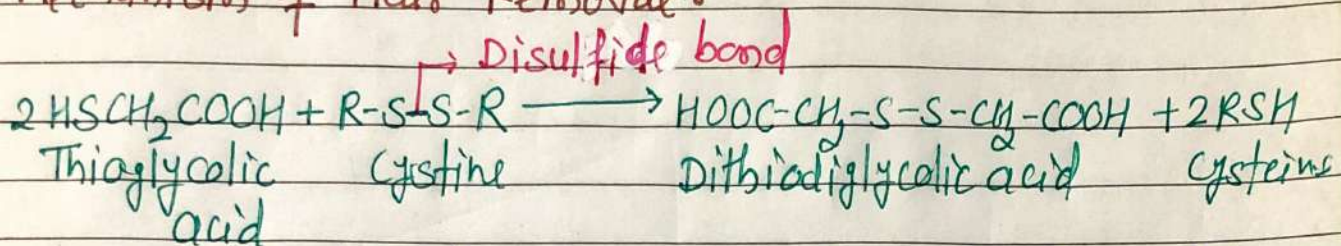 → Disulfide bond
2HSCH₂COOH + R-S-S-R ⟶ HOOC-CH₂-S-S-CH₂-COOH + 2RSH
Thioglycolic Cystine Dithiodiglycolic acid Cysteine
acid